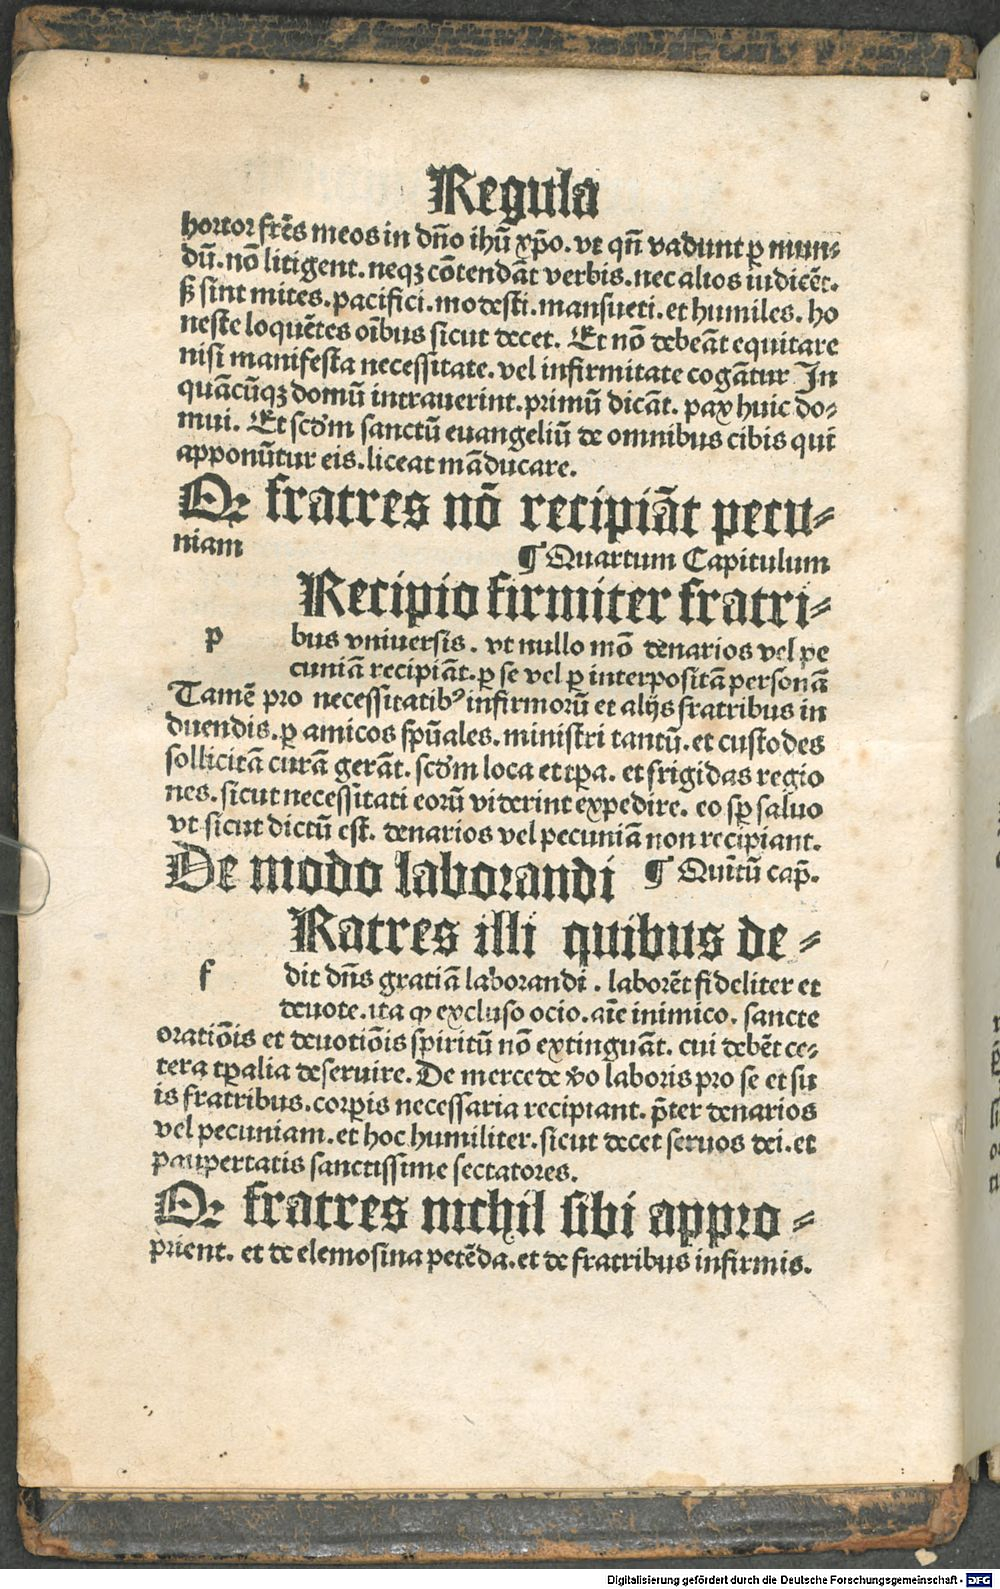 Regula
hortor fr̃es meos in dño ihũ xp̃o. vt qñ vadunt ꝑ mun⸗
dũ. nõ litigent. neqꝫ cõtendãt verbis. nec alios iudicẽt.
ß sint mites. pacifici. modesti. mansueti. et humiles. ho
neste loquẽtes oĩbus sicut decet. Et nõ debeãt equitare
nisi manifesta necessitate. vel infirmitate cogãtur In
quãcũqꝫ domũ intrauerint. primũ dicãt. pax huic do⸗
mui. Et scd̃m sanctũ euangeliũ de omnibus cibis qui
apponũtur eis. liceat mãducare.
Qꝛ fratres nõ recipiãt pecu⸗
niam ¶ Quartum Capitulum
Recipio firmiter fratri⸗
p bus vniuersis. vt nullo mõ denarios vel pe
cuniã recipiãt. ꝑ se vel ꝑ interpositã personã
Tamẽ pro necessitatibꝰ infirmorũ et alijs fratribus in
duendis. ꝑ amicos sp̃uales. ministri tantũ. et custodes
sollicitã curã gerãt. scd̃m loca et tꝑa. et frigidas regio
nes. sicut necessitati eorũ viderint expedire. eo sꝑ saluo
vt sicut dictũ est. denarios vel pecuniã non recipiant.
De modo laborandi ¶ Quĩtũ cap̃.
Ratres illi quibus de⸗
f dit dñs gratiã laborandi. laborẽt fideliter et
deuote. ita ꝙ excluso ocio. aĩe inimico. sancte
oratiõis et deuotiõis spiritũ nõ extinguãt. cui debẽt ce⸗
tera tꝑalia deseruire. De mercede v̾o laboris pro se et su
is fratribus. corꝑis necessaria recipiant. p̃ter denarios
vel pecuniam. et hoc humiliter. sicut decet seruos dei. et
paupertatis sanctissime sectatores.
Qꝛ fratres nichil sibi appro⸗
prient. et de elemosina petẽda. et de fratribus infirmis.
Digitalisierung gefördert durch die Deutsche Forschungsgemeinschaft - DFG